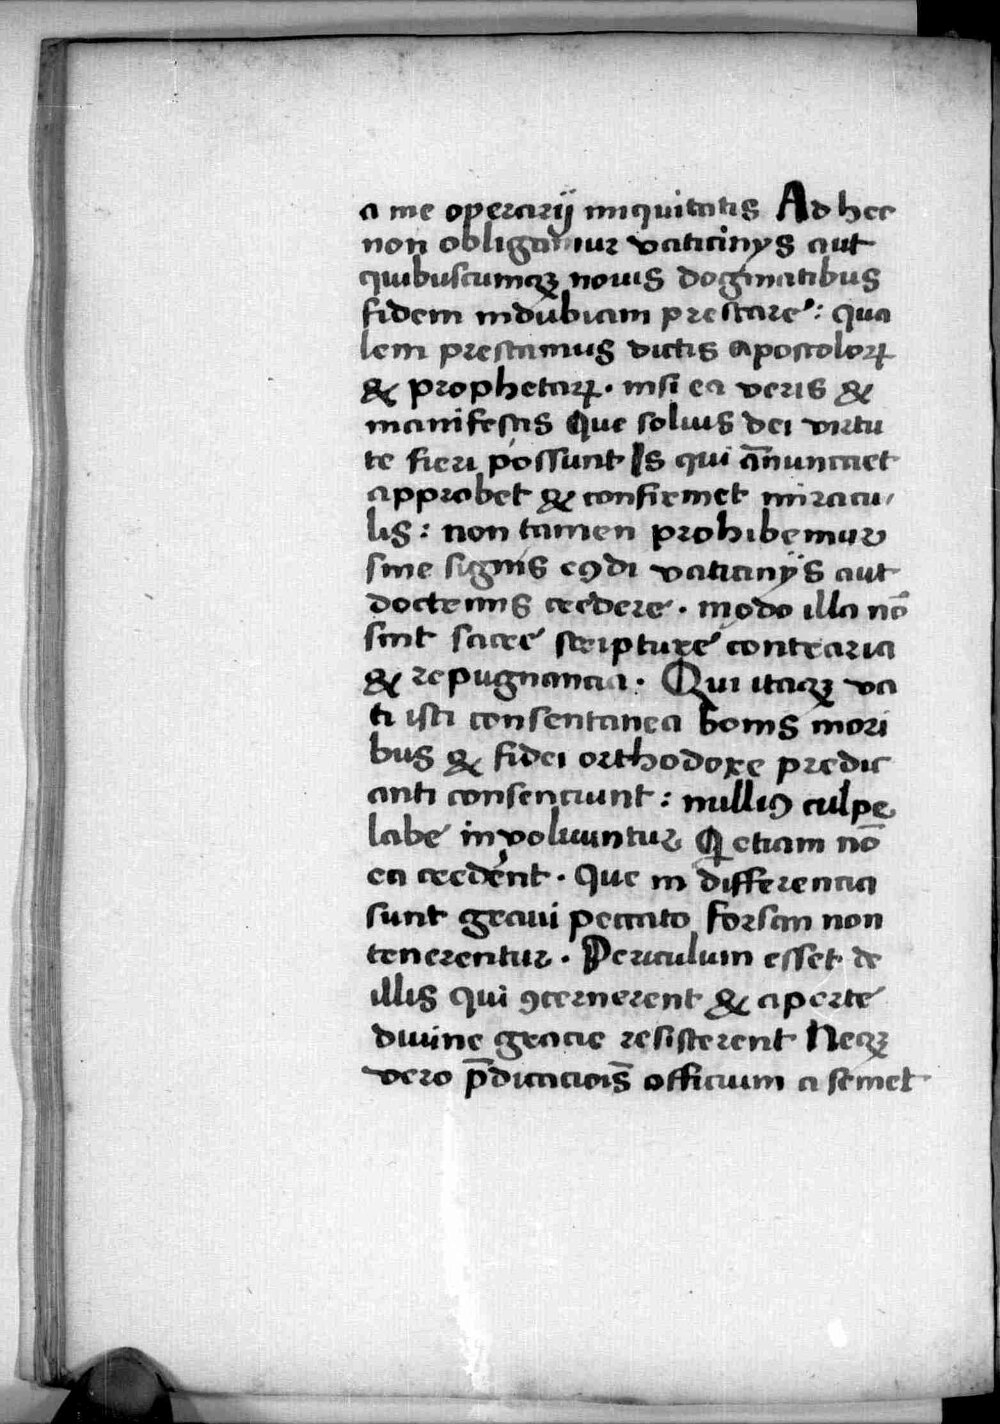 a me operarij iniquitatis Ad hec
non obligamur vaticinys aut
quibuscumqꝫ nouis dogmatibus
fidem indubiam prestare : qua
lem prestamus dictis apostoloꝝ
& prophetaꝝ . nisi ea veris &
manifestis Que solius dei virtu
te fieri possunt Is qui ānunciet
approbet & confirmet miracu
lis : non tamen prohibemur
sine signis eꝯdi vaticinijs aut
doctrinis credere . modo illa nō
sint sacre scripture contraria
& repugnancia . Qui itaqꝫ va
ti isti consentanea bonis mori
bus & fidei orthodoxe predic
anti consenciunt : nulliꝰ culpe
labe involuuntur Q etiam nō
ea crederēt . Que in differencia
sunt graui peccato forsan non
tenerentur . Periculum esset de
illis qui ꝯcernerent & aperte
diuine gracie resisterent Neqꝫ
vero p̄dicaciois̄ officium a semet